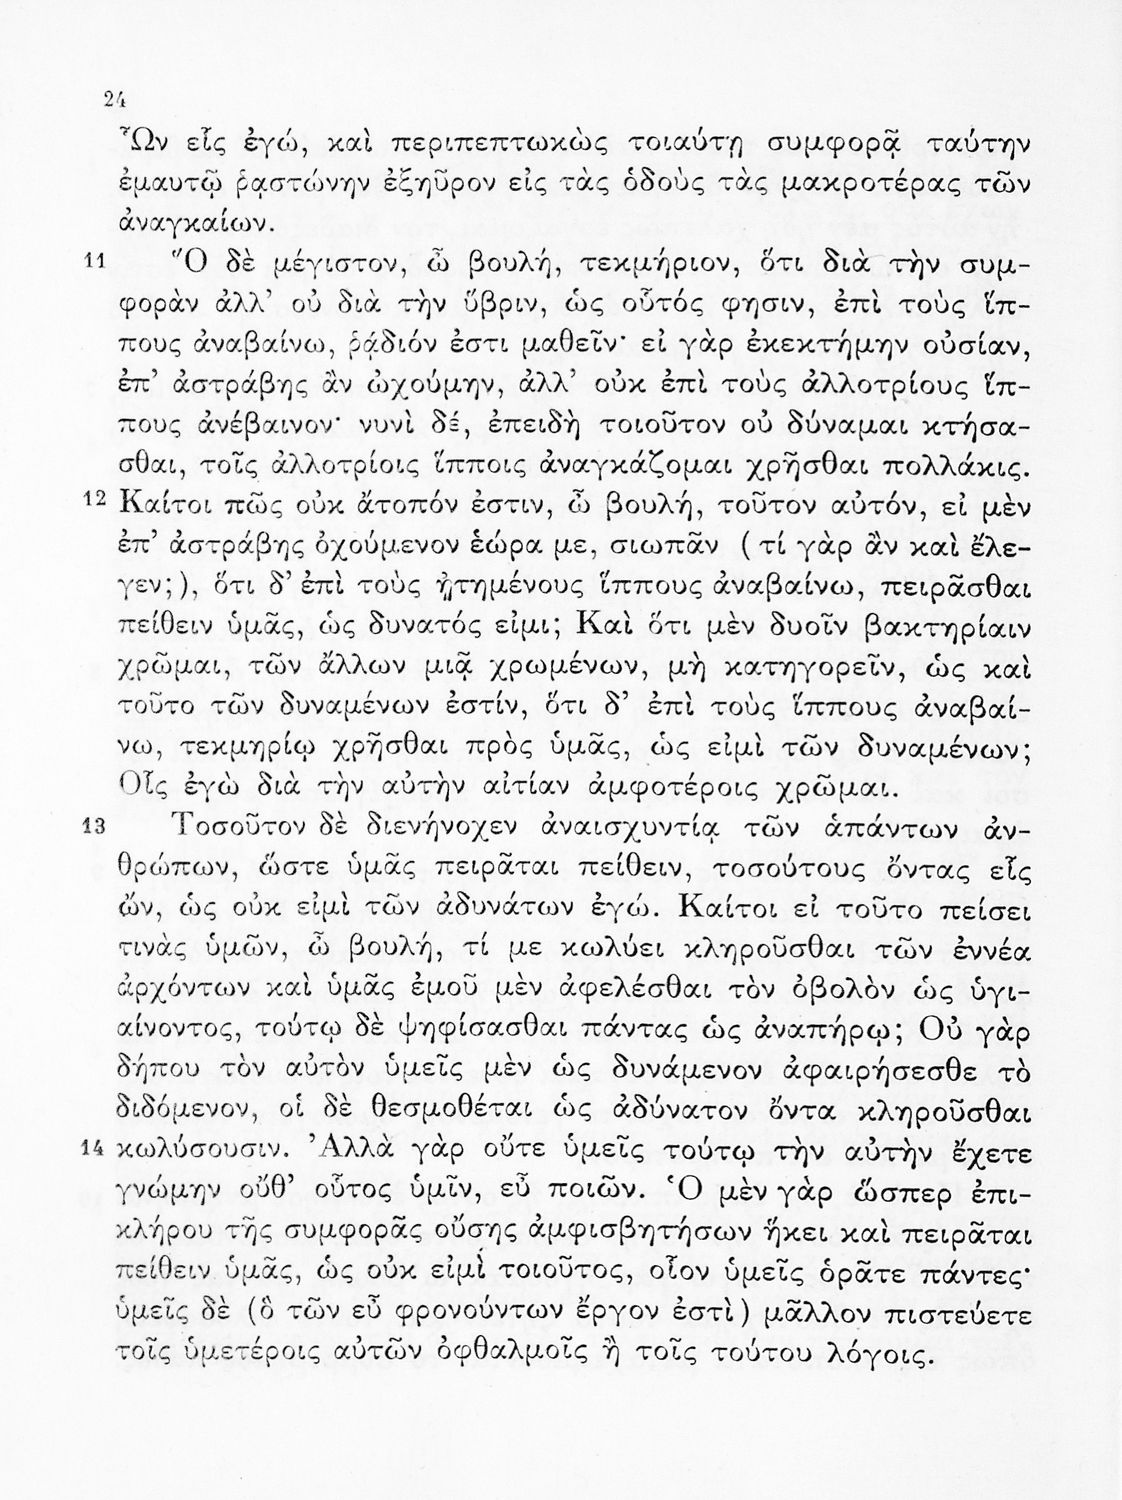 24
Ὧν εἷς ἐγώ, καὶ περιπεπτωκὼς τοιαύτῃ συμφορᾷ ταύτην
ἐμαυτῷ ῥᾳστώνην ἐξηῦρον εἰς τὰς ὁδοὺς τὰς μακροτέρας τῶν
ἀναγκαίων.
11 Ὃ δὲ μέγιστον, ὦ βουλή, τεκμήριον, ὅτι διὰ τὴν συμ-
φορὰν ἀλλ’ οὐ διὰ τὴν ὕβριν, ὡς οὗτός φησιν, ἐπὶ τοὺς ἵπ-
πους ἀναβαίνω, ῥᾴδιόν ἐστι μαθεῖν· εἰ γὰρ ἐκεκτήμην οὐσίαν,
ἐπ’ ἀστράβης ἂν ὠχούμην, ἀλλ’ οὐκ ἐπὶ τοὺς ἀλλοτρίους ἵπ-
πους ἀνέβαινον· νυνὶ δέ, ἐπειδὴ τοιοῦτον οὐ δύναμαι κτήσα-
σθαι, τοῖς ἀλλοτρίοις ἵπποις ἀναγκάζομαι χρῆσθαι πολλάκις.
12 Καίτοι πῶς οὐκ ἄτοπόν ἐστιν, ὦ βουλή, τοῦτον αὐτόν, εἰ μὲν
ἐπ’ ἀστράβης ὀχούμενον ἑώρα με, σιωπᾶν (τί γὰρ ἂν καὶ ἔλε-
γεν;), ὅτι δ’ ἐπὶ τοὺς ᾐτημένους ἵππους ἀναβαίνω, πειρᾶσθαι
πείθειν ὑμᾶς, ὡς δυνατός εἰμι; Καὶ ὅτι μὲν δυοῖν βακτηρίαιν
χρῶμαι, τῶν ἄλλων μιᾷ χρωμένων, μὴ κατηγορεῖν, ὡς καὶ
τοῦτο τῶν δυναμένων ἐστίν, ὅτι δ’ ἐπὶ τοὺς ἵππους ἀναβαί-
νω, τεκμηρίῳ χρῆσθαι πρὸς ὑμᾶς, ὡς εἰμὶ τῶν δυναμένων;
Οἷς ἐγὼ διὰ τὴν αὐτὴν αἰτίαν ἀμφοτέροις χρῶμαι.
13 Τοσοῦτον δὲ διενήνοχεν ἀναισχυντίᾳ τῶν ἁπάντων ἀν-
θρώπων, ὥστε ὑμᾶς πειρᾶται πείθειν, τοσούτους ὄντας εἷς
ὤν, ὡς οὐκ εἰμὶ τῶν ἀδυνάτων ἐγώ. Καίτοι εἰ τοῦτο πείσει
τινὰς ὑμῶν, ὦ βουλή, τί με κωλύει κληροῦσθαι τῶν ἐννέα
ἀρχόντων καὶ ὑμᾶς ἐμοῦ μὲν ἀφελέσθαι τὸν ὀβολὸν ὡς ὑγι-
αίνοντος, τούτῳ δὲ ψηφίσασθαι πάντας ὡς ἀναπήρῳ; Οὐ γὰρ
δήπου τὸν αὐτὸν ὑμεῖς μὲν ὡς δυνάμενον ἀφαιρήσεσθε τὸ
διδόμενον, οἱ δὲ θεσμοθέται ὡς ἀδύνατον ὄντα κληροῦσθαι
14 κωλύσουσιν. Ἀλλὰ γὰρ οὔτε ὑμεῖς τούτῳ τὴν αὐτὴν ἔχετε
γνώμην οὔθ’ οὗτος ὑμῖν, εὖ ποιῶν. Ὁ μὲν γὰρ ὥσπερ ἐπι-
κλήρου τῆς συμφορᾶς οὔσης ἀμφισβητήσων ἥκει καὶ πειρᾶται
πείθειν ὑμᾶς, ὡς οὐκ εἰμὶ τοιοῦτος, οἷον ὑμεῖς ὁρᾶτε πάντες·
ὑμεῖς δὲ (ὃ τῶν εὖ φρονούντων ἔργον ἐστὶ) μᾶλλον πιστεύετε
τοῖς ὑμετέροις αὐτῶν ὀφθαλμοῖς ἢ τοῖς τούτου λόγοις.